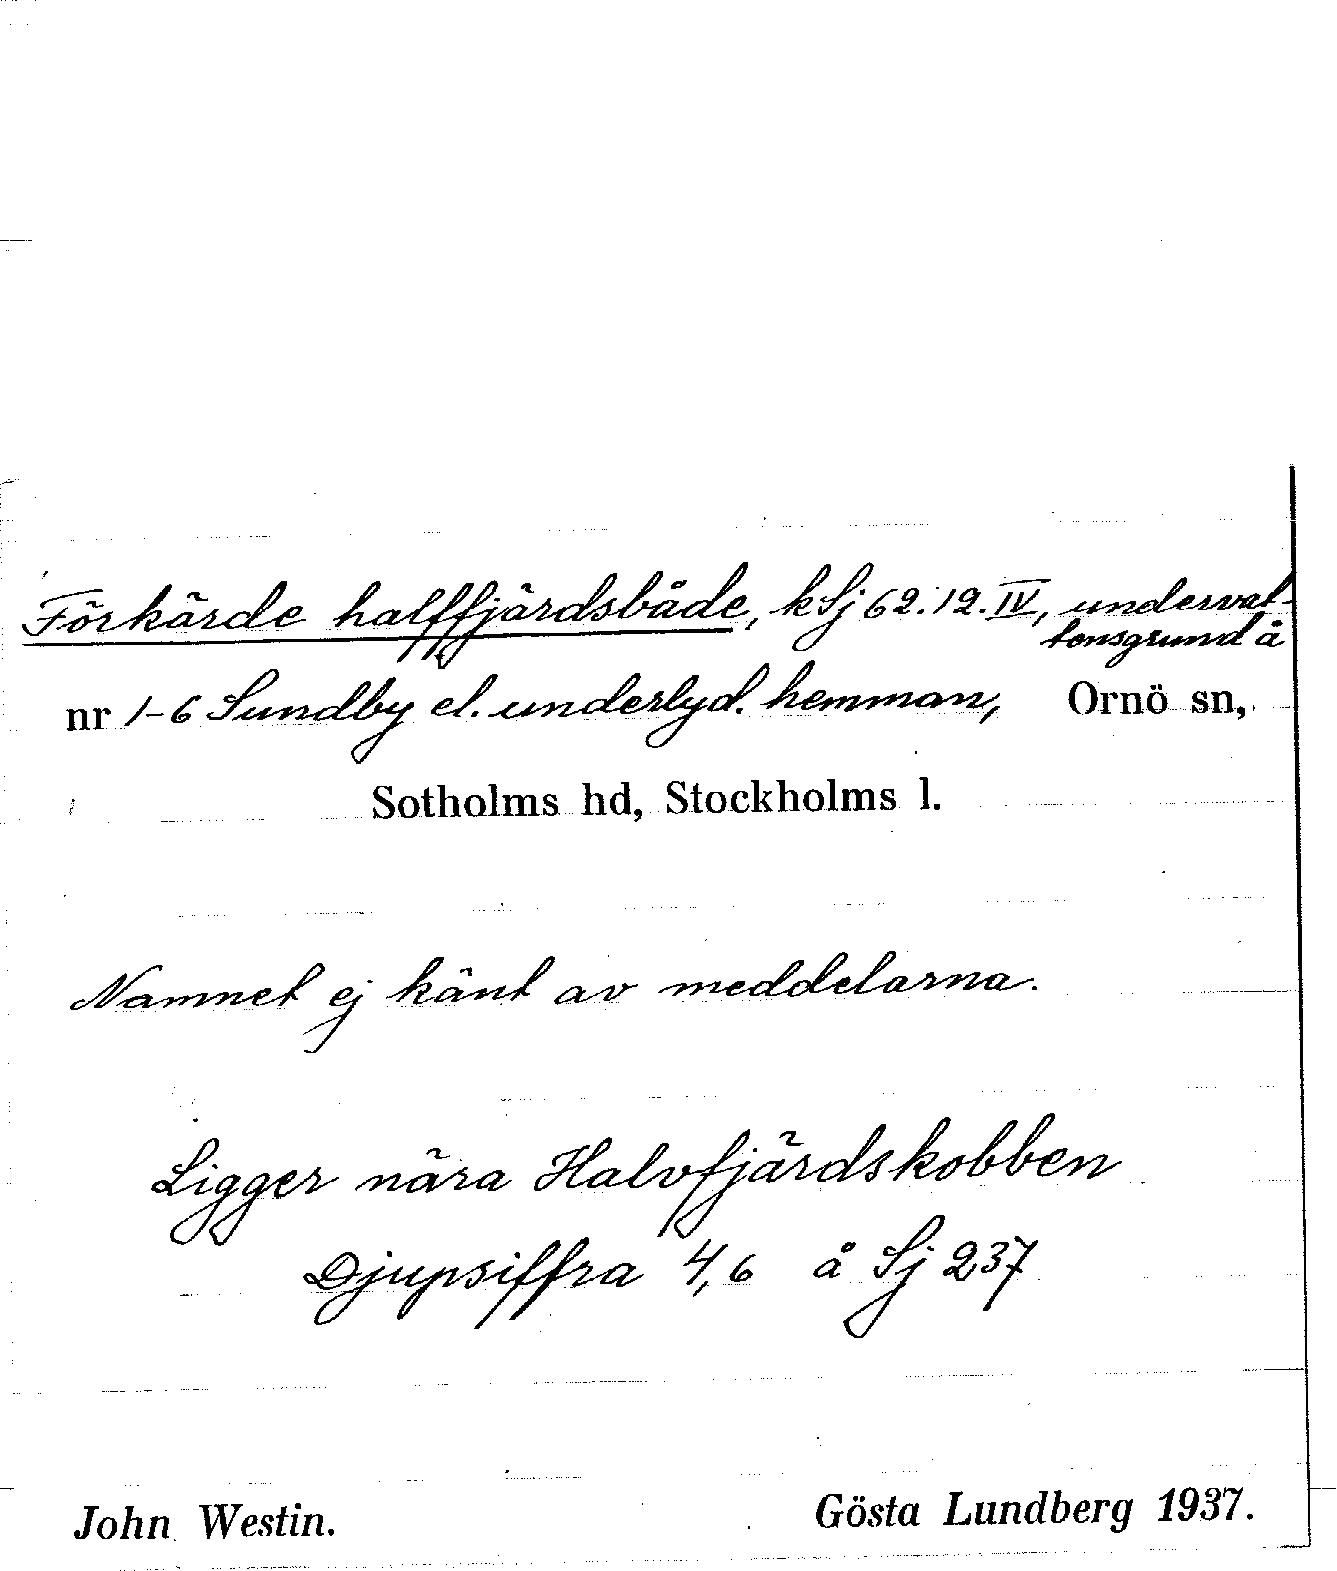 Förkärde halffjärdsbåde, k Sj 62.12.IV, undervat-
tensgrund å
nr 1-6 Sundby el. underlyd. hemman, Ornö sn,
Sotholms hd, Stockholms l.
Namnet ej känt av meddelarna.
Ligger nära Halvfjärdskobben
Djupsiffra 4,6 å Sj 237
John Westin. Gösta Lundberg 1937.